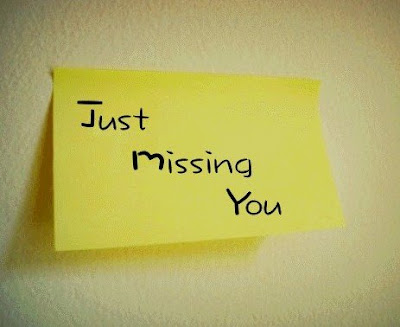 Just
missing
You